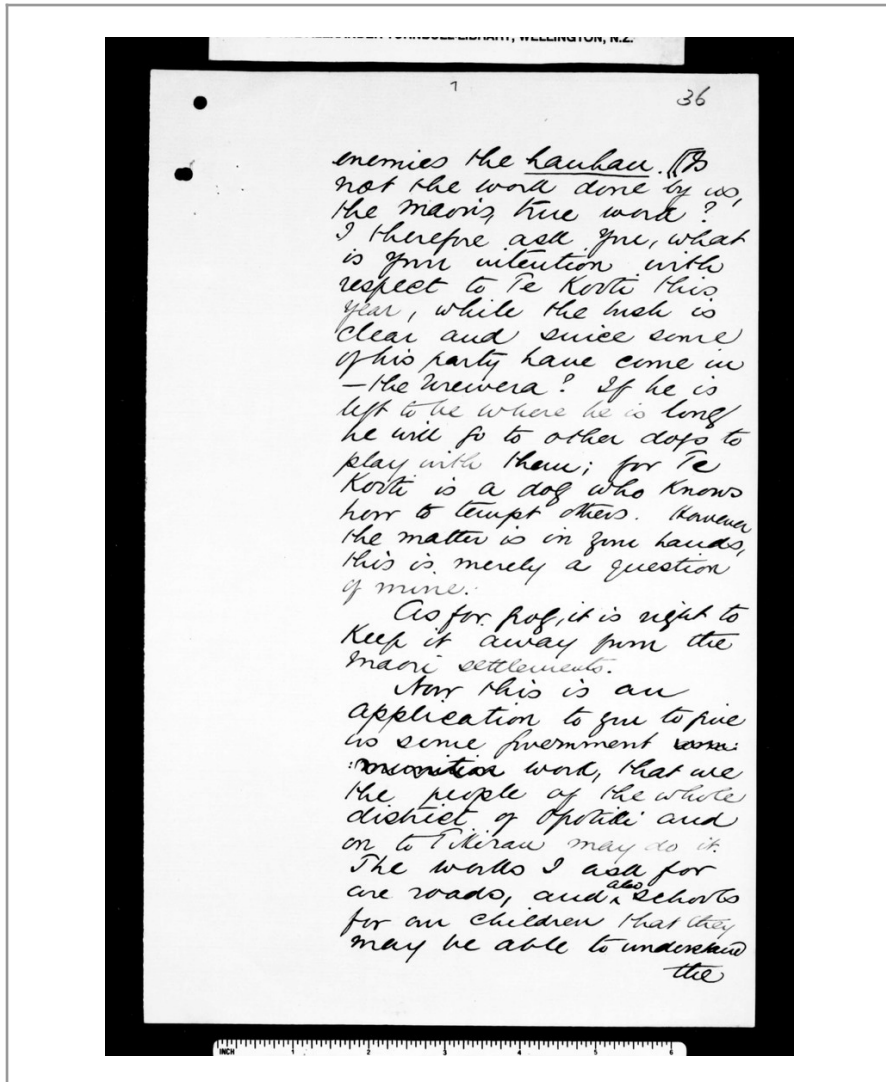 ALEXANDER TURNBULL LIBRARY, WELLINGTON, N.Z.
7
36
enemies the hauhau. [Is
not the work done by us,
the Maoris, true work?
I therefore ask you, what
is your intention with
respect to Te Kooti this
year, while the bush is
clear and since some
of his party have come in
— the Urewera? If he is
left to be where he is long
he will go to other dogs to
play with them; for Te
Kooti is a dog who knows
how to tempt others. However
the matter is in your hands,
this is merely a question
of mine.
As for grog, it is right to
keep it away from the
Maori settlements.
Now this is an
application to you to give
us some government
work, that we
the people of the whole
district of Opotiki and
on to Tikirau may do it.
The works I ask for
are roads, and also schools
for our children that they
may be able to understand
the
INCH 1 2 3 4 5 6